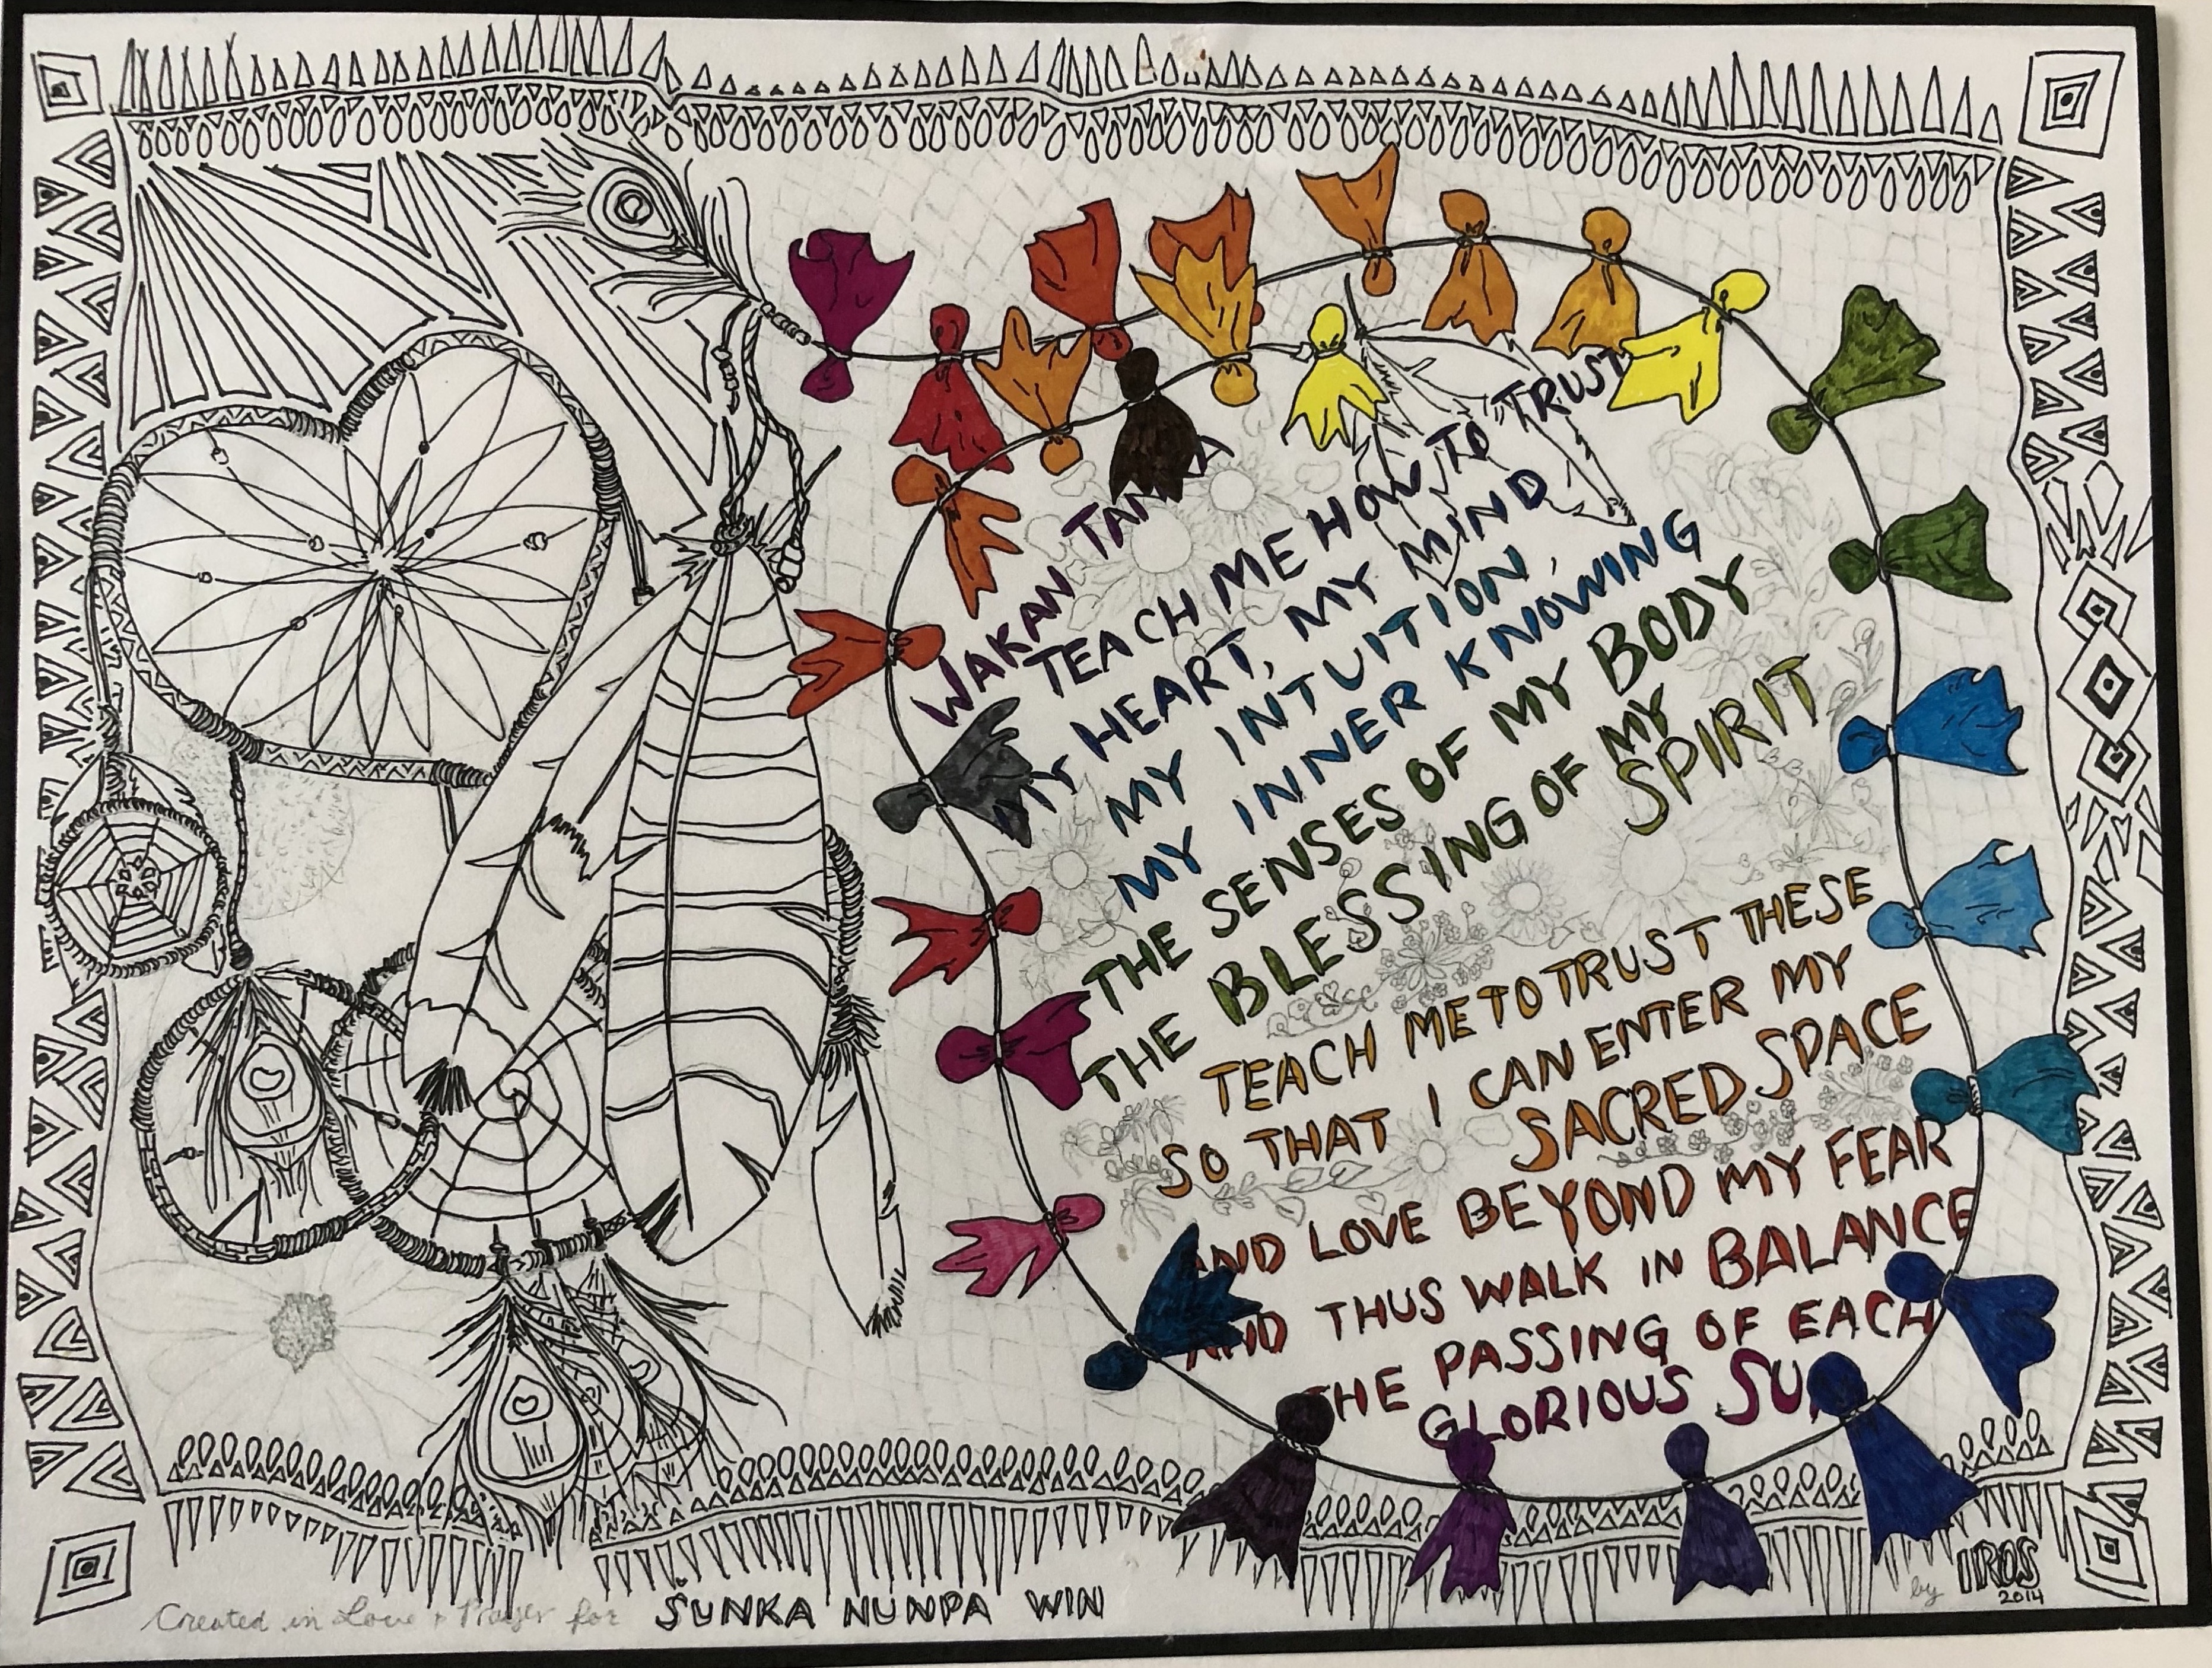 WAKAN TANKA
TEACH ME HOW TO TRUST
MY HEART, MY MIND
MY INTUITION,
MY INNER KNOWING
THE SENSES OF MY BODY
THE BLESSING OF MY
SPIRIT
TEACH ME TO TRUST THESE
SO THAT I CAN ENTER MY
SACRED SPACE
AND LOVE BEYOND MY FEAR
AND THUS WALK IN BALANCE
THE PASSING OF EACH
GLORIOUS SUN
Created in Love + Prayer for ŠUNKA NUNPA WIN
by IROS
2014